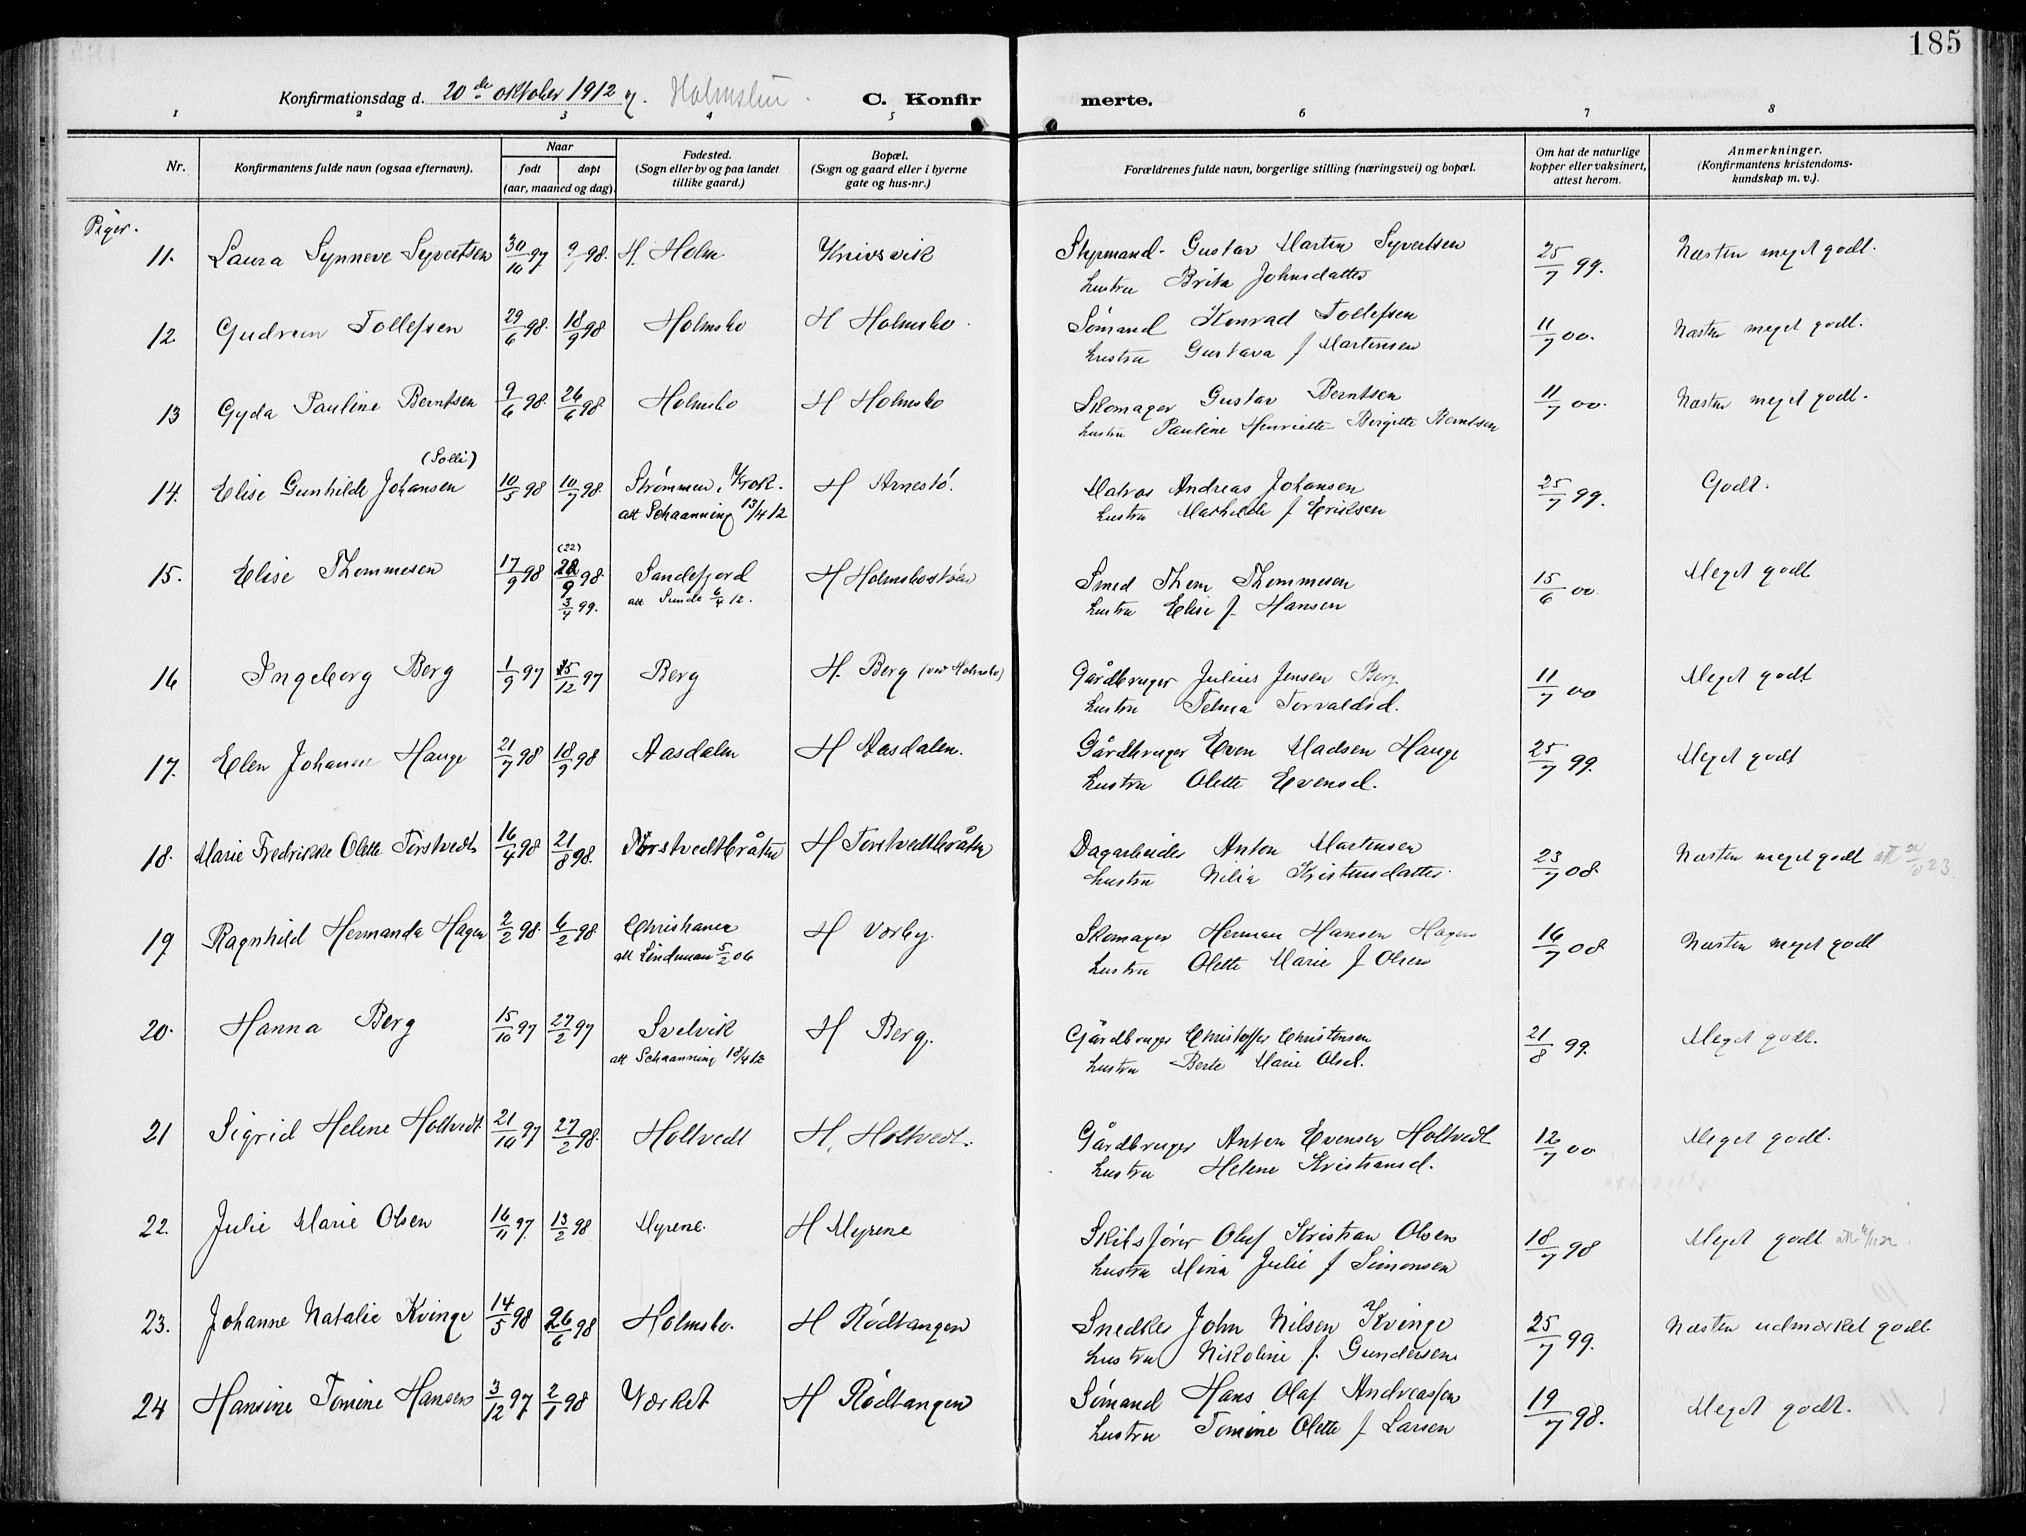 185
Konfirmationsdag d. 20de oktober 1912 C. Konfirmerte.
1 2 3 4 5 6 7 8
Nr. Konfirmantens fulde navn (ogsaa efternavn). Naar født døpt (aar, maaned og dag). Fødested. (Sogn eller by og paa landet tillike gaard.) Bopæl. (Sogn og gaard eller i byerne gate og hus-nr.) Forældrenes fulde navn, borgerlige stilling (næringsvei) og bopæl. Om hat de naturlige kopper eller vaksinert, attest herom. Anmerkninger. (Konfirmantens kristendomskundskap m. v.).
Piger.
11. Laura Synneve Syvertsen 30/10 97 9/1 98. H. Holm Knivsvik Styrmand Gustav Martin Syvertsen 25/7 99. Næsten meget godt.
hustru Brita Johnsdatter
12 Gudrun Tollefsen 29/6 98. 18/9 98 Holmsbo H Holmsbo. Sømand Konrad Tollefsen 11/7 00. Næsten meget godt.
hustru Gustava f Martinsen
13 Gyda Pauline Berntsen 9/6 98. 26/6 98. Holmsbo H Holmsbo Skomager Gustav Berntsen 11/7 00. Næsten meget godt.
hustru Pauline Henriette Birgitte Berntsen
(Solli)
14. Elise Gunhilde Johansen 10/5 98 10/7 98. Strømmen, Krok. H Arnestø. Matros Andreas Johansen 25/7 99. Godt.
att Schaanning 13/4 12 hustru Mathilde f Eriksen
(22)
15. Elise Thommesen 17/9 98 28/9 98. Sandefjord H Holmsbostøen Smed Thom Thommesen 15/6 00. Meget godt
3/4 99. att Sunde 6/4 12. hustru Elise f. Hansen
16 Ingeborg Berg 1/9 97 25/12 97 Berg H. Berg (ved Holmsbo) Gårdbruger Julius Jensen Berg. 11/7 00 Meget godt
hustru Telma Torvaldsd.
17. Elen Johanne Hauge 21/7 98 18/9 98 Aasdalen H Aasdalen. Gårdbruger Even Madsen Hauge 25/7 99. Meget godt
hustru Olette Evensd.
18. Marie Fredrikke Olette Torstvedt 16/4 98 21/8 98. Torstvedtbråten H Torstvedtbråten Dagarbeider Anton Martinsen 23/7 08. Næsten meget godt
hustru Nilia Kristensdatter.
19 Ragnhild Hermanda Hagen 2/2 98. 6/2 98 Christiania H Vorby. Skomager Herman Hansen Hagen 16/7 08 Næsten meget godt
att Lindeman 5/2 06 hustru Olette Marie f Olsen
20. Hanna Berg 15/10 97 27/2 97 Svelvik H Berg. Gårdbruger Christoffer Christensen 21/8 99. Meget godt.
att Schaanning 18/4 12 hustru Berte Marie Olsd.
21 Sigrid Helene Holtvedt 21/10 97 27/2 98. Holtvedt H. Holtvedt. Gårdbruger Anton Evensen Holtvedt 12/7 00 Meget godt.
hustru Helene Kristiansd.
22. Julie Marie Olsen 16/11 97. 13/2 98 Myrene. H Myrene Skibsfører Olaf Kristian Olsen 18/7 98 Meget godt
hustru Mina Julie f Simonsen
23. Johanne Natalie Kvinge 14/5 98 26/6 98 Holmsbo. H Rødtangen Snedker John Nilsen Kvinge 25/7 99. Næsten udmærket godt
hustru Nikoline f. Gundersen
24 Hansine Tomine Hansen 3/12 97 2/1 98 Værket H Rødtangen Sømand Hans Olaf Andreassen 19/7 98. Meget godt.
hustru Tomine Olette f Larsen